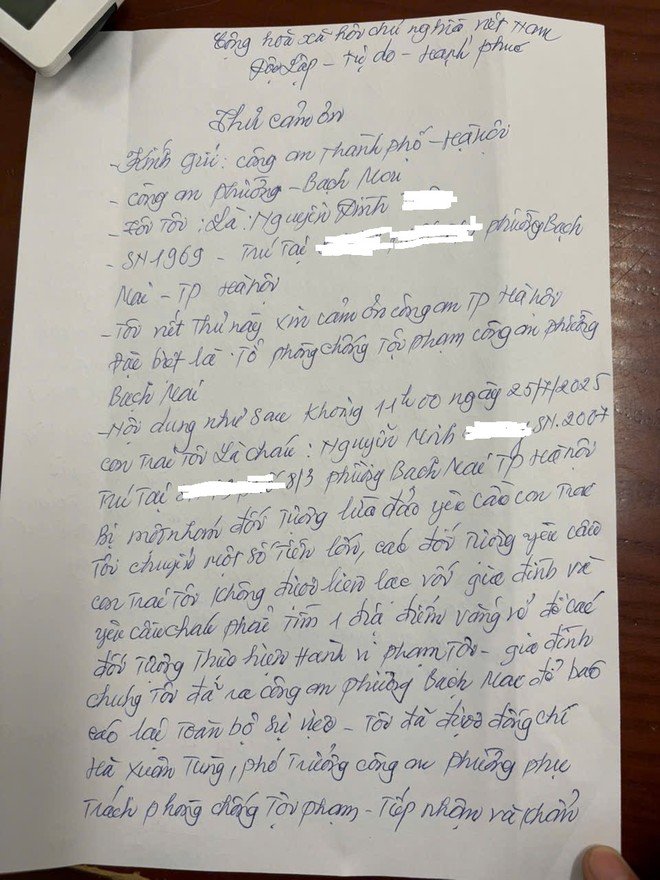 Cộng hoà xã hôi chủ nghĩa việt Nam
Độc Lập - Tự do - Hạnh phúc
Thư cảm ơn
- Kính gửi: công an Thành phố - Hà nội
- công an phường - Bạch Mai
- Tên Tôi: Là: Nguyễn Đình
- SN 1969 - Trú Tại phường Bạch
Mai - TP Hà nội
- Tôi viết Thư này xin cảm ơn công an TP Hà nội
Đặc biệt là Tổ phòng chống Tội phạm công an phường
Bạch Mai
- Nội dung như sau khoảng 11h00 ngày 25/7/2025
con Trai Tôi Là cháu: Nguyễn Minh SN.2007
Trú Tại 8/3 phường Bạch Mai TP Hà nội
Bị một nhóm đối tượng lừa đảo yêu cầu con Trai
Tôi chuyển một số Tiền lớn, các đối Tượng yêu cầu
con Trai Tôi không được liên lạc với gia đình và
yêu cầu cháu phải Tìm 1 địa điểm vắng vẻ để các
đối Tượng Thực hiện Hành vi phạm Tội - gia đình
chúng Tôi đã ra công an phường Bạch Mai để báo
cáo lại Toàn bộ sự việc - Tôi đã được đồng chí
Hà Xuân Tùng, phó Trưởng công an phường phụ
Trách phòng chống Tội phạm - Tiếp nhận và khẩn